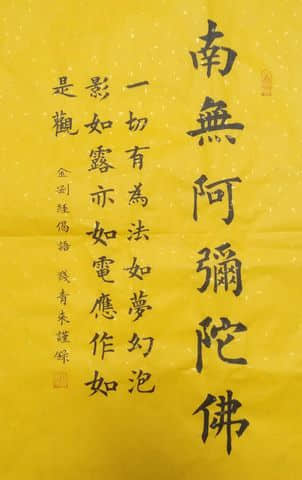 南無阿彌陀佛
一切有為法如夢幻泡
影如露亦如電應作如
是觀
金剛經偈語 錢青來謹錄